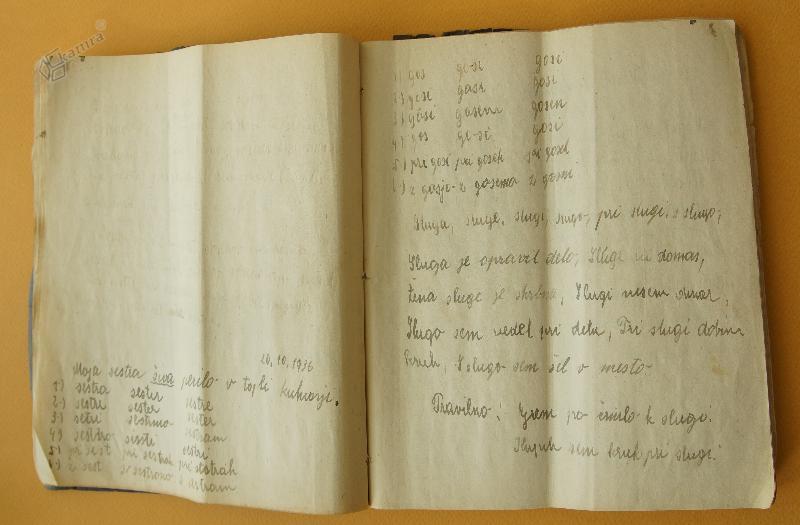 kamra
20.10.1936
Moja sestra šiva perilo v topli kuhinji.
1) sestra sester sestre
2) sestri sester sester
3) setri sestrama sestram
4) sestro sestri sestri
5) pri sest pri sestrah pri sestrah
6) z sest s sestrama s sestram
1) gos go-si gosi
2) gosi gosi gosi
3) gosi gosem gosem
4) gos go-si gosi
5) pri gosi pri goseh
6) z gosjo z gosema z gosmi
Sluga, sluge, slugi, slugo, pri slugi, s slugo,
Sluga je opravil delo, Sluge ni domas,
Žena sluge je skrbna, Slugi nesem denar,
Slugo sem videl pri delu, Pri slugi dobim
kruh, S slugo sem šel v mesto.
Pravilno: Grem po črnilo k slugi.
sem kruh pri slugi.